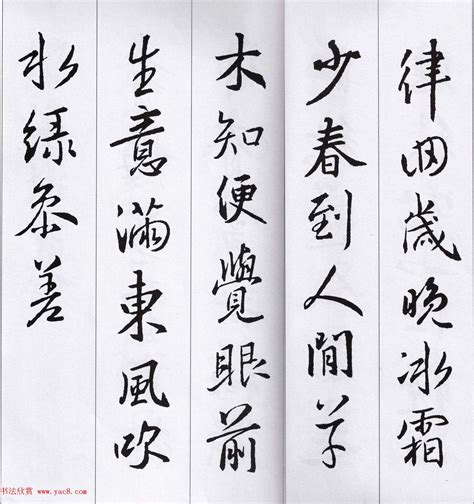 律回歲晚冰霜
少春到人間草
木知便覺眼前
生意滿東風吹
水綠參差
书法欣赏 www.yac8.com